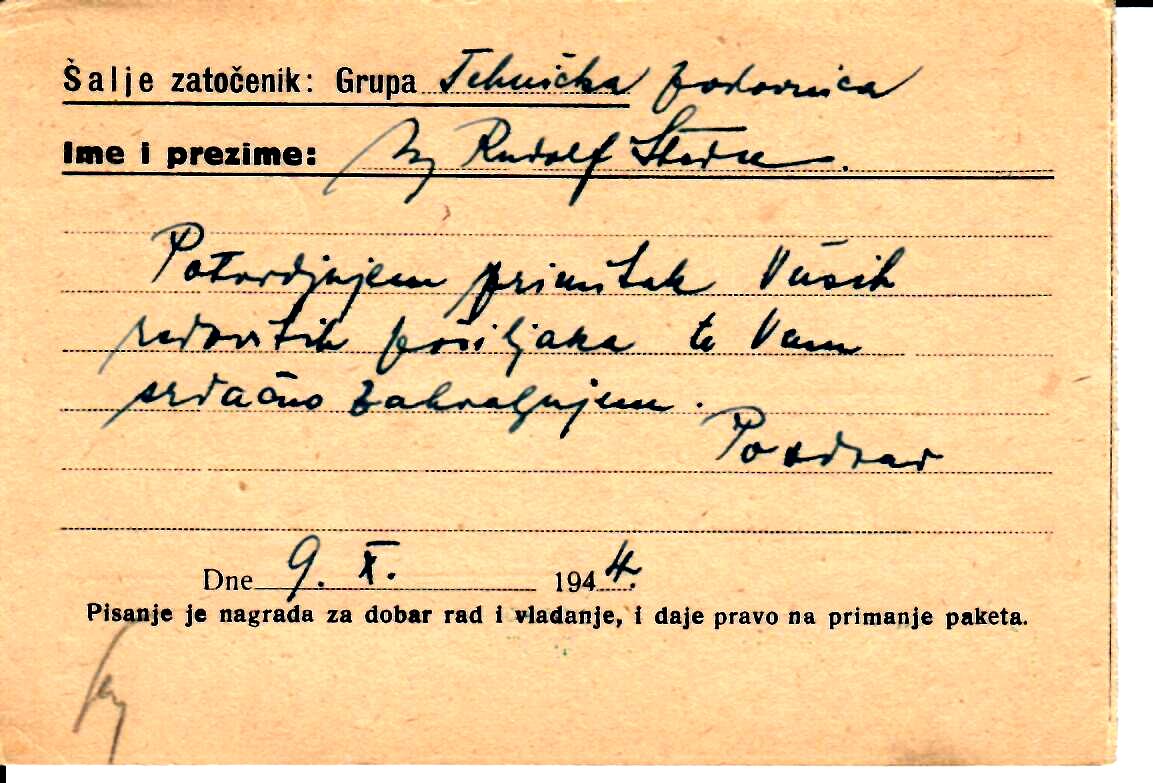 Šalje zatočenik: Grupa Tehnička
Ime i prezime: Ing Rudolf
Potvrdjujem primitak Vaših
redovitih pošiljaka te Vam
srdačno zahvaljujem.
Pozdrav
Dne 9. X. 1944.
Pisanje je nagrada za dobar rad i vladanje, i daje pravo na primanje paketa.